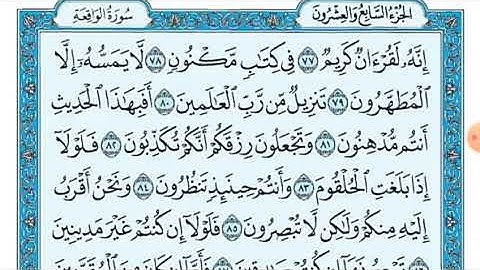 الجُزْءُ السَّابِعُ وَالعِشْرُونَ
سُورَةُ الوَاقِعَةِ
إِنَّهُۥ لَقُرْءَانٌ كَرِيمٌ ٧٧ فِى كِتَٰبٍ مَّكْنُونٍ ٧٨ لَّا يَمَسُّهُۥٓ إِلَّا
ٱلْمُطَهَّرُونَ ٧٩ تَنزِيلٌ مِّن رَّبِّ ٱلْعَٰلَمِينَ ٨٠ أَفَبِهَٰذَا ٱلْحَدِيثِ
أَنتُم مُّدْهِنُونَ ٨١ وَتَجْعَلُونَ رِزْقَكُمْ أَنَّكُمْ تُكَذِّبُونَ ٨٢ فَلَوْلَآ
إِذَا بَلَغَتِ ٱلْحُلْقُومَ ٨٣ وَأَنتُمْ حِينَئِذٍ تَنظُرُونَ ٨٤ وَنَحْنُ أَقْرَبُ
إِلَيْهِ مِنكُمْ وَلَٰكِن لَّا تُبْصِرُونَ ٨٥ فَلَوْلَآ إِن كُنتُمْ غَيْرَ مَدِينِينَ